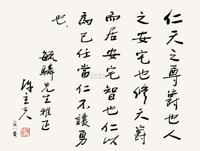 仁天之尊爵也人
之安宅也修天爵
而居安宅智也仁以
為己任當仁不讓勇
也
毓麟先生雅正
陳立夫